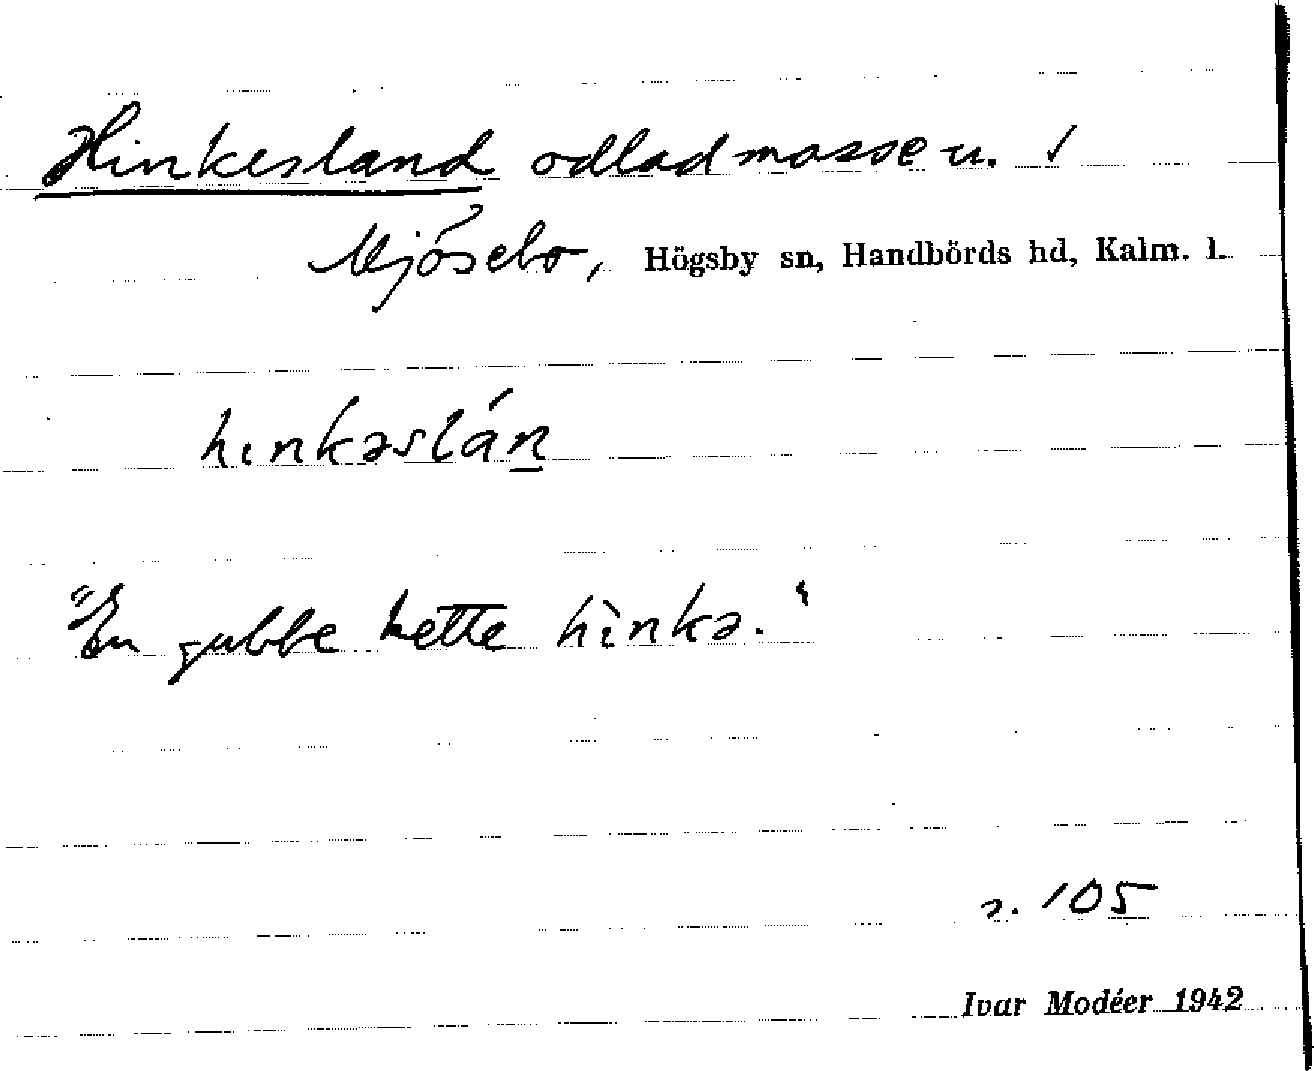 Hinkesland odlad mosse u. ✓
Mjösebo, Högsby sn, Handbörds hd, Kalm. l.
hınkəslán̲
"En gubbe hette hìnkə."
s. 105
Ivar Modéer 1942